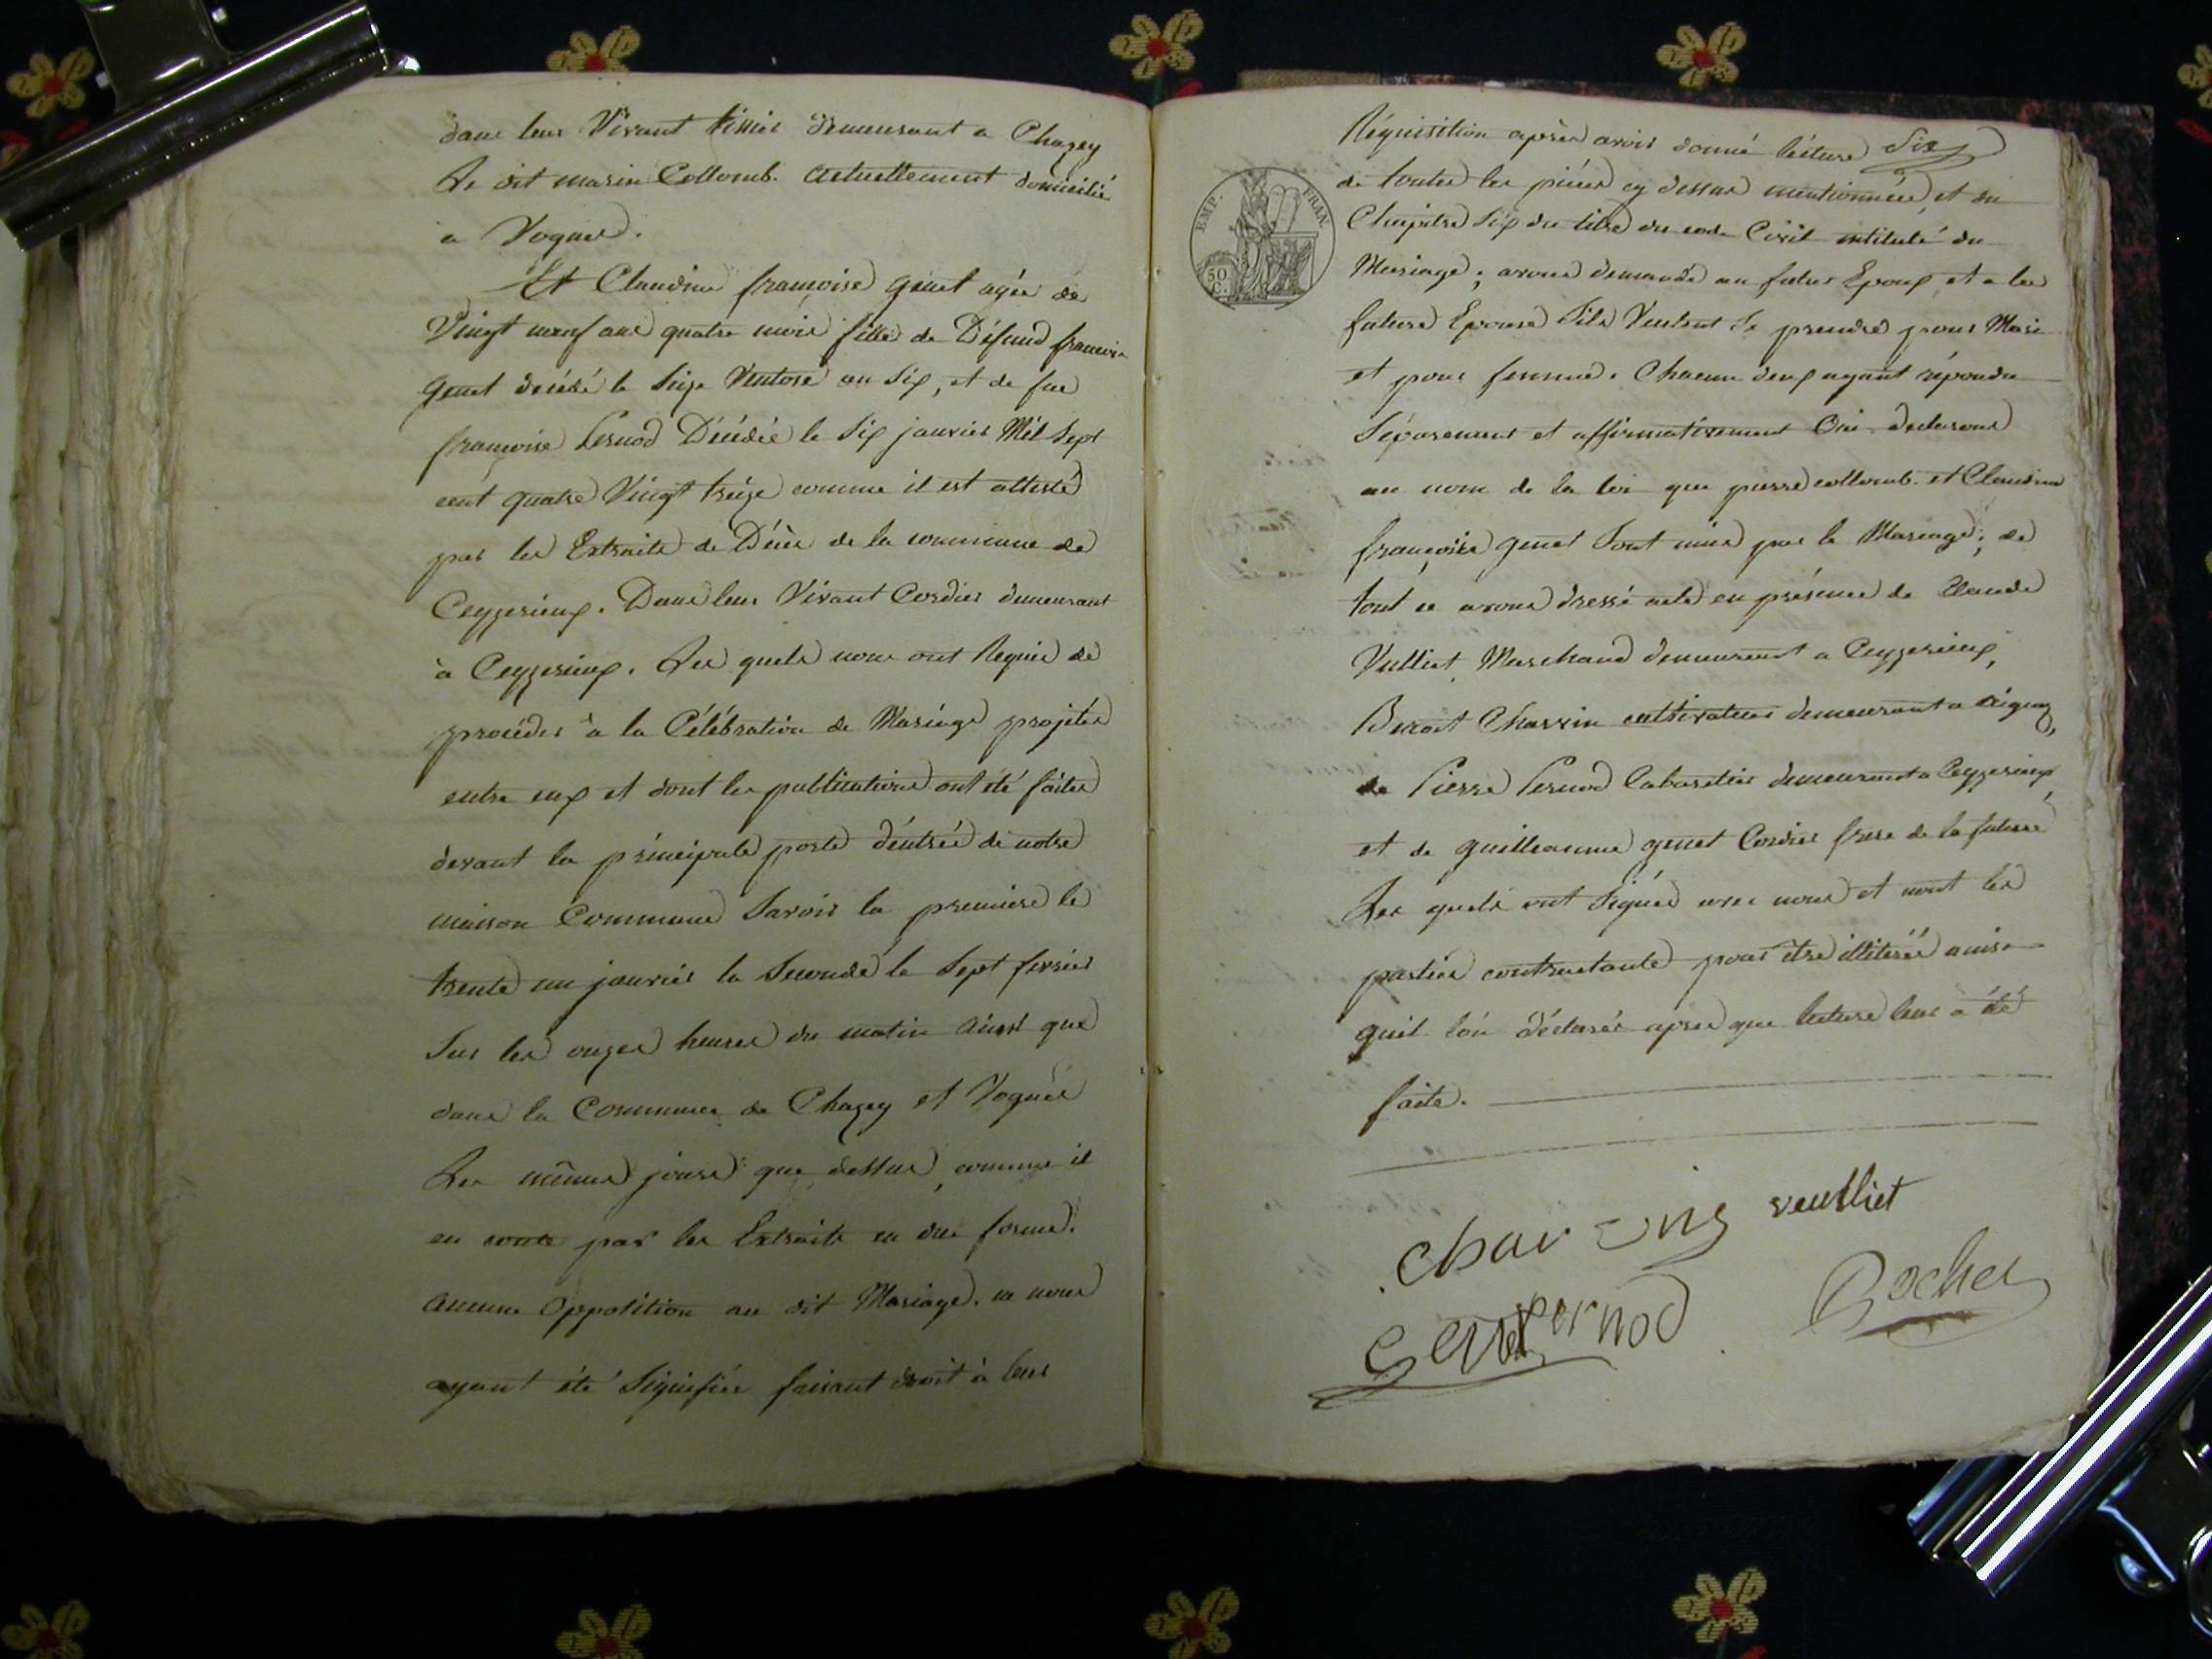 dans leur Vivant tissier demeurant a Chazey
Le dit marin Collomb. actuellement domicilié
a Vognes.
Et Claudine françoise genet agée de
Vingt neuf ans quatre mois fille de Défund françois
genet décédé le Seize Ventose an Six, et de fue
françoise Pernod Décédée le Six janvier Mil Sept
cent quatre Vingt treize comme il est attesté
par les Extraits de Décès de la commune de
Ceyzerieux. Dans leur Vivant Cordier demeurant
à Ceyzerieux. Les quels nous ont Requis de
procéder à la Célébration de Mariage projetée
entre eux et dont les publications ont été faites
devant la principale porte d'éntrée de notre
maison Commune Savoir la premiere le
trente un janvier la Seconde le Sept fevrier
Sur les onzes heures du matin ainsi que
dans la Commune de Chazey et Vognes
Les mêmes jours que dessus, comme il
en conte par les Extraits en due forme.
aucune opposition au dit Mariage. ne nous
ayant été Signifiée faisant droit à leur
Réquisition après avoir donné lécture Six
de toutes les piéces cy dessus mentionnées, et du
Chapitre Six du titre du code Civil intitulé du
Mariage; avons demandé au futur Epoux et a la
future Epouse S'ils Veulent Se prendre pour Mari
et pour femme. Chacun deux ayant répondu
Séparement et affirmativement Oui Declarons
au nom de la loi que pierre collomb. et Claudine
françoise genet Sont unis par le Mariage; de
tout ce avons dressé acte en présence de Claude
Vulliet Marchand demeurant a Ceyzerieux,
Benoit Charvin cultivateur demeurant a
de Pierre Pernod Cabaretier demeurant a Ceyzerieux,
et de guilleaume genet Cordier frere de la future
Les quels ont Signés avec nous et nont les
parties contractantes pour être illiterés ainsi
quil l'on déclarés apres que lecture leur a été
faite.
Charving veulliet
genet pernod Rocher
EMP. FRAN.
50 C.